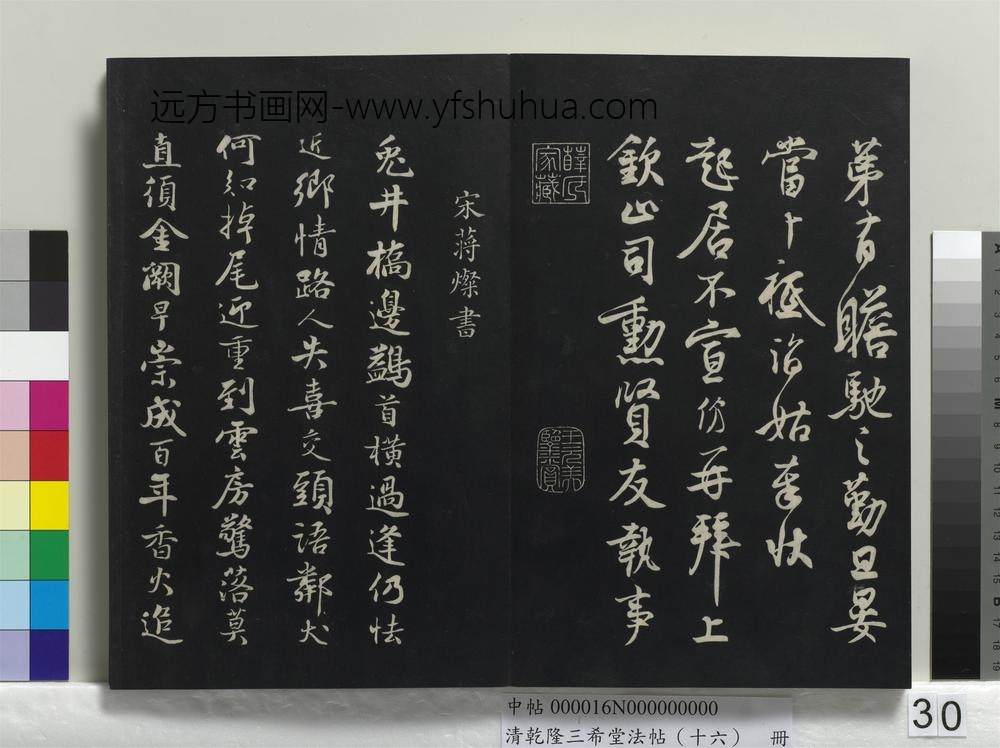 远方书画网-www.yfshuhua.com
弟有瞻馳之勤旦晏
當卜祗詣姑奉狀
起居不宣份再拜上
欽止司勳賢友執事
薛氏家藏
宋蔣燦書
兎井橋邊鷁首橫過逢仍怯
近鄉情路人失喜交頭語鄰犬
何知掉尾迎重到雲房驚落莫
直須金闕早崇成百年香火追
中帖 000016N000000000
清乾隆三希堂法帖（十六） 冊
30